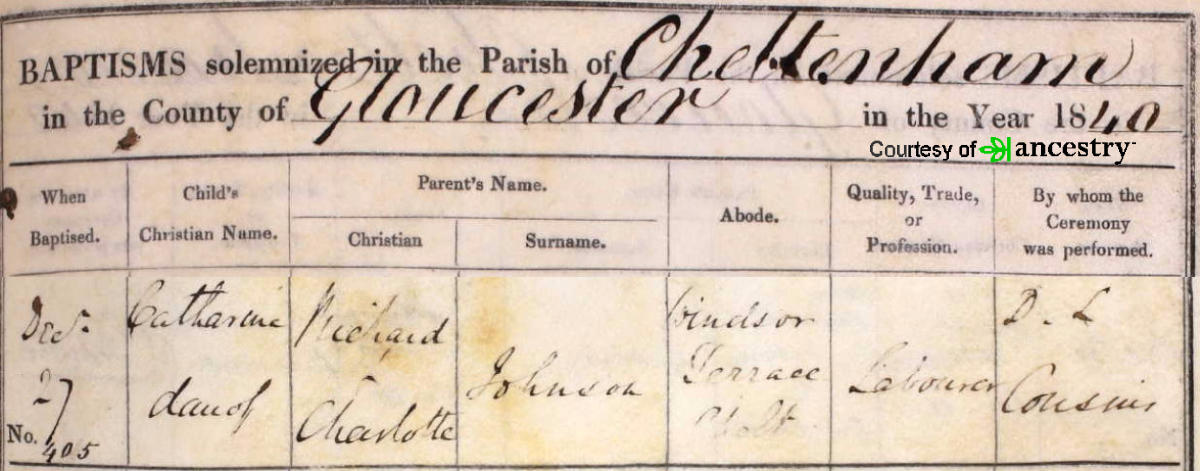 BAPTISMS solemnized in the Parish of Cheltenham
in the County of Gloucester in the Year 1840
Courtesy of ancestry
When Baptised.
Child's Christian Name.
Parent's Name.
Christian
Surname.
Abode.
Quality, Trade, or Profession.
By whom the Ceremony was performed.
Decr.
27
No. 405
Catharine
dau of
Richard
Charlotte
Johnson
Windsor
Terrace
Chelt
Labourer
D. L
Cousins